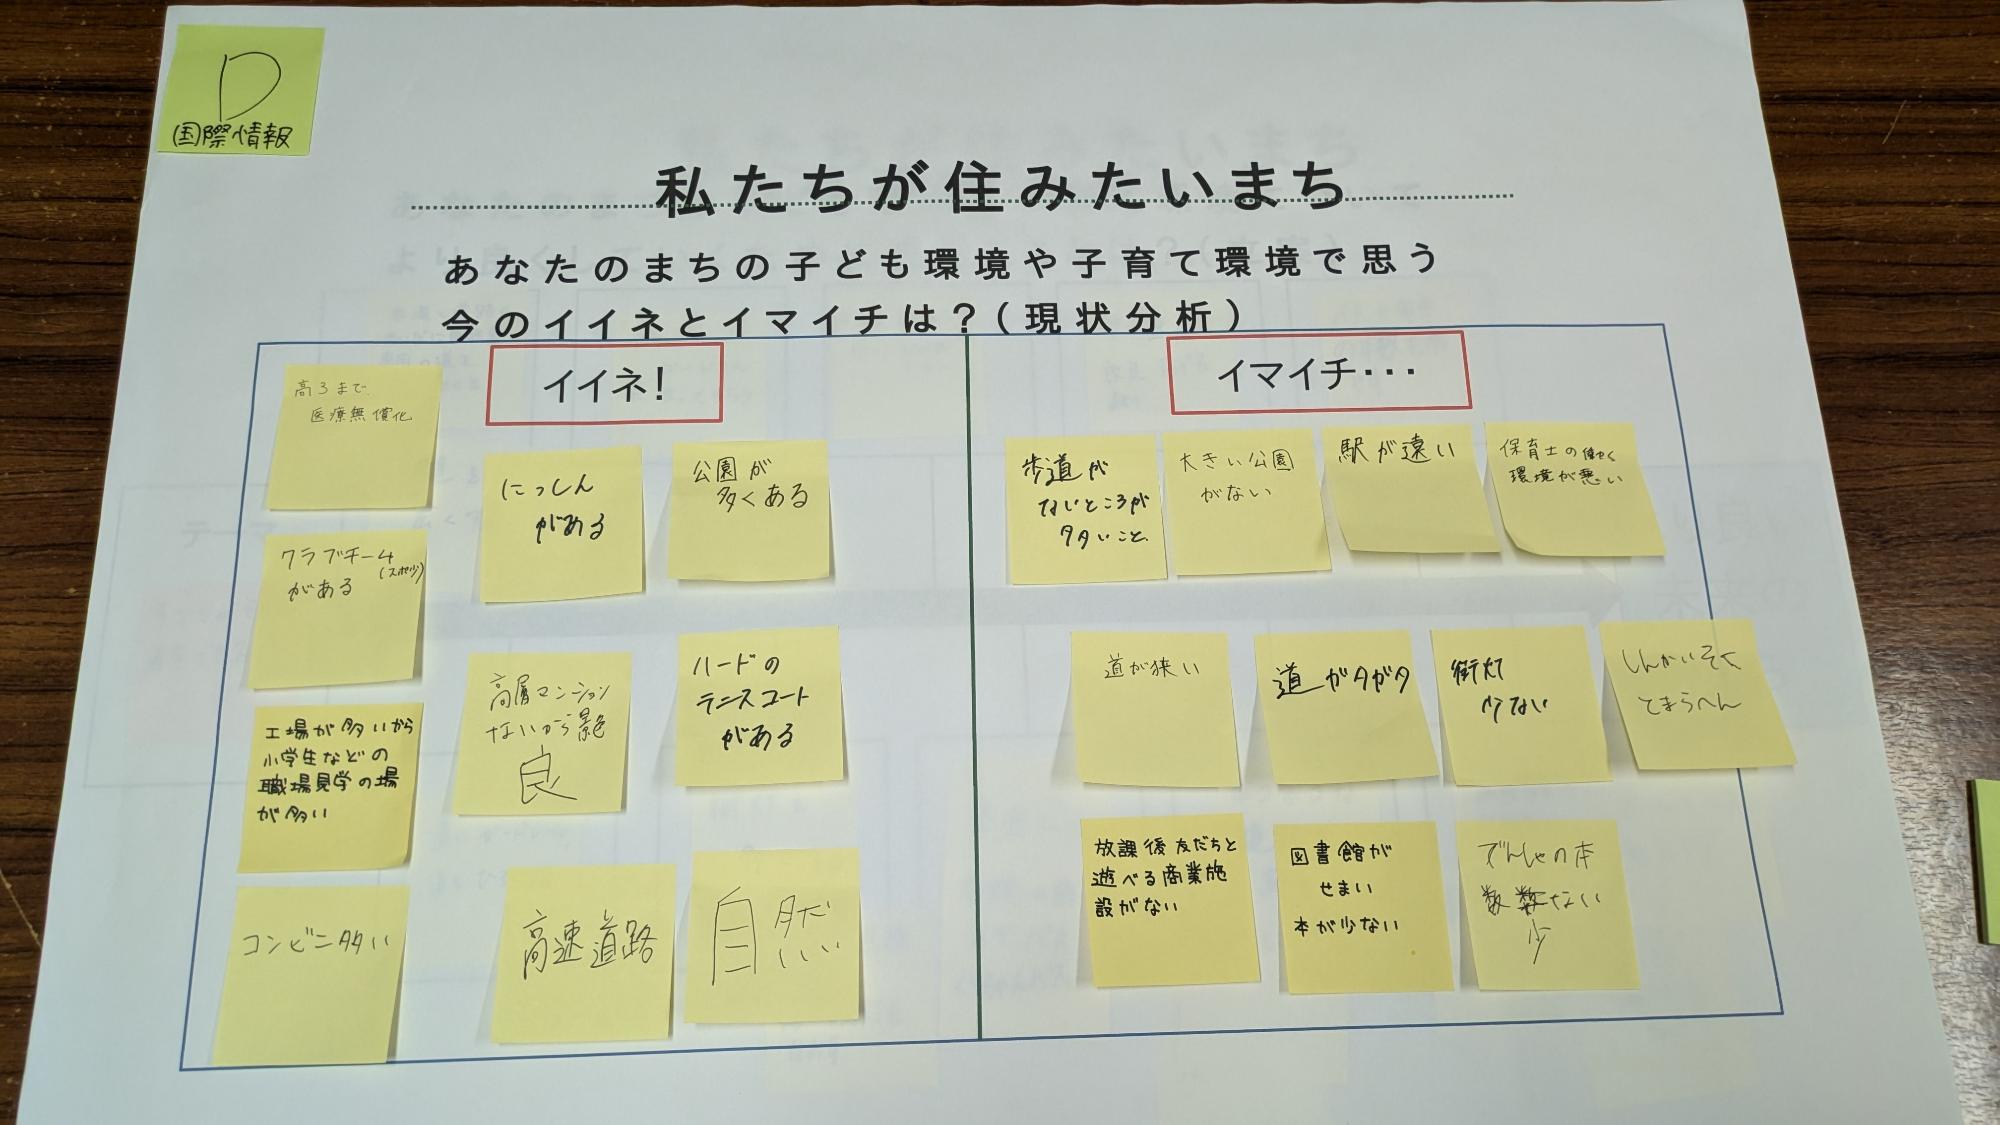 D
国際情報
私たちが住みたいまち
あなたのまちの子ども環境や子育て環境で思う
今のイイネとイマイチは？(現状分析)
イイネ！
高3まで
医療無償化
にっしん
がある
公園が
多くある
クラブチーム
(スポ少)
がある
高層マンション
ないから景色
良
ハードの
テニスコート
がある
工場が多いから
小学生などの
職場見学の場
が多い
コンビニ多い
高速道路
自然
イマイチ・・・
歩道が
ないところが
多いこと
大きい公園
がない
駅が遠い
保育士の働く
環境が悪い
道が狭い
道がガタガタ
街灯
少ない
しんかいそく
とまらへん
放課後友だちと
遊べる商業施
設がない
図書館が
せまい
本が少ない
でんしゃの本
数 ない
少